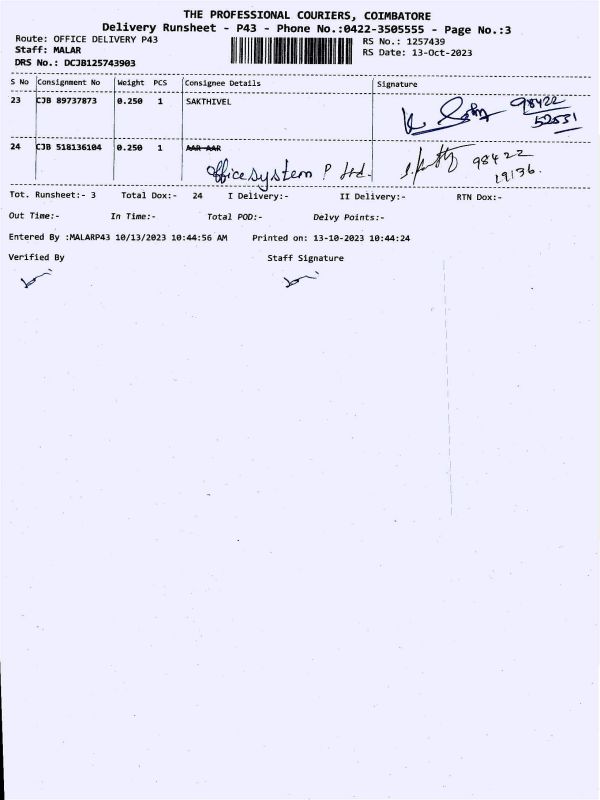 THE PROFESSIONAL COURIERS, COIMBATORE
Delivery Runsheet - P43 - Phone No.:0422-3505555 - Page No.:3
Route: OFFICE DELIVERY P43 RS No.: 1257439
Staff: MALAR RS Date: 13-Oct-2023
DRS No.: DCJB125743903
S No Consignment No Weight PCS Consignee Details Signature
23 CJB 89737873 0.250 1 SAKTHIVEL 98422
52531
24 CJB 518136104 0.250 1 AAR AAR
Office system P Ltd. 98422
19136.
Tot. Runsheet:- 3 Total Dox:- 24 I Delivery:- II Delivery:- RTN Dox:-
Out Time:- In Time:- Total POD:- Delvy Points:-
Entered By :MALARP43 10/13/2023 10:44:56 AM Printed on: 13-10-2023 10:44:24
Verified By Staff Signature